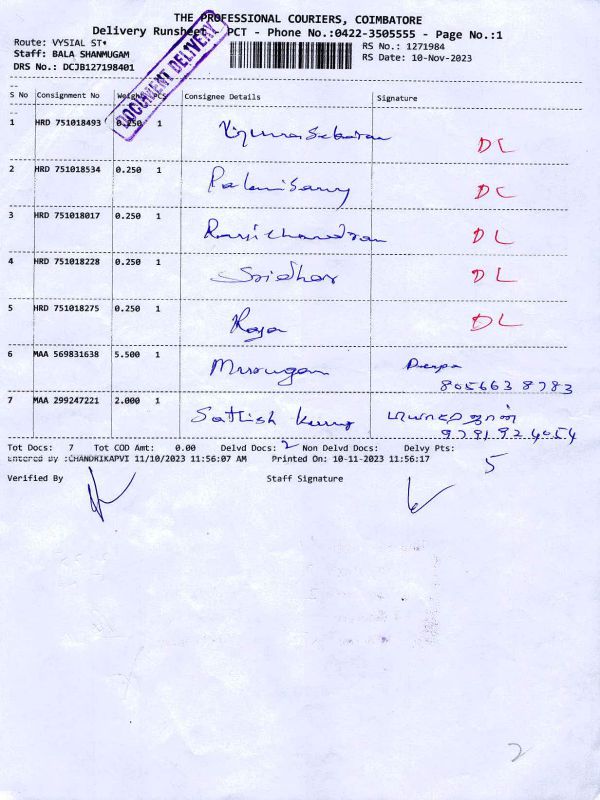 THE PROFESSIONAL COURIERS, COIMBATORE
Delivery Runsheet PCT - Phone No.:0422-3505555 - Page No.:1
Route: VYSIAL ST*
RS No.: 1271984
Staff: BALA SHANMUGAM
RS Date: 10-Nov-2023
DRS No.: DCJB127198401
DOCUMENT DELIVERY
S No Consignment No Weight PCS Consignee Details Signature
1 HRD 751018493 0.250 1 DL
2 HRD 751018534 0.250 1 Palanisamy DL
3 HRD 751018017 0.250 1 Ravichandran DL
4 HRD 751018228 0.250 1 Sridhar DL
5 HRD 751018275 0.250 1 Raja DL
6 MAA 569831638 5.500 1 Murugan
8056638783
7 MAA 299247221 2.000 1 Sathish Kumar
9791924054
Tot Docs: 7 Tot COD Amt: 0.00 Delvd Docs: 2 Non Delvd Docs: Delvy Pts:
5
Entered By :CHANDRIKAPVI 11/10/2023 11:56:07 AM Printed On: 10-11-2023 11:56:17
Verified By Staff Signature
2